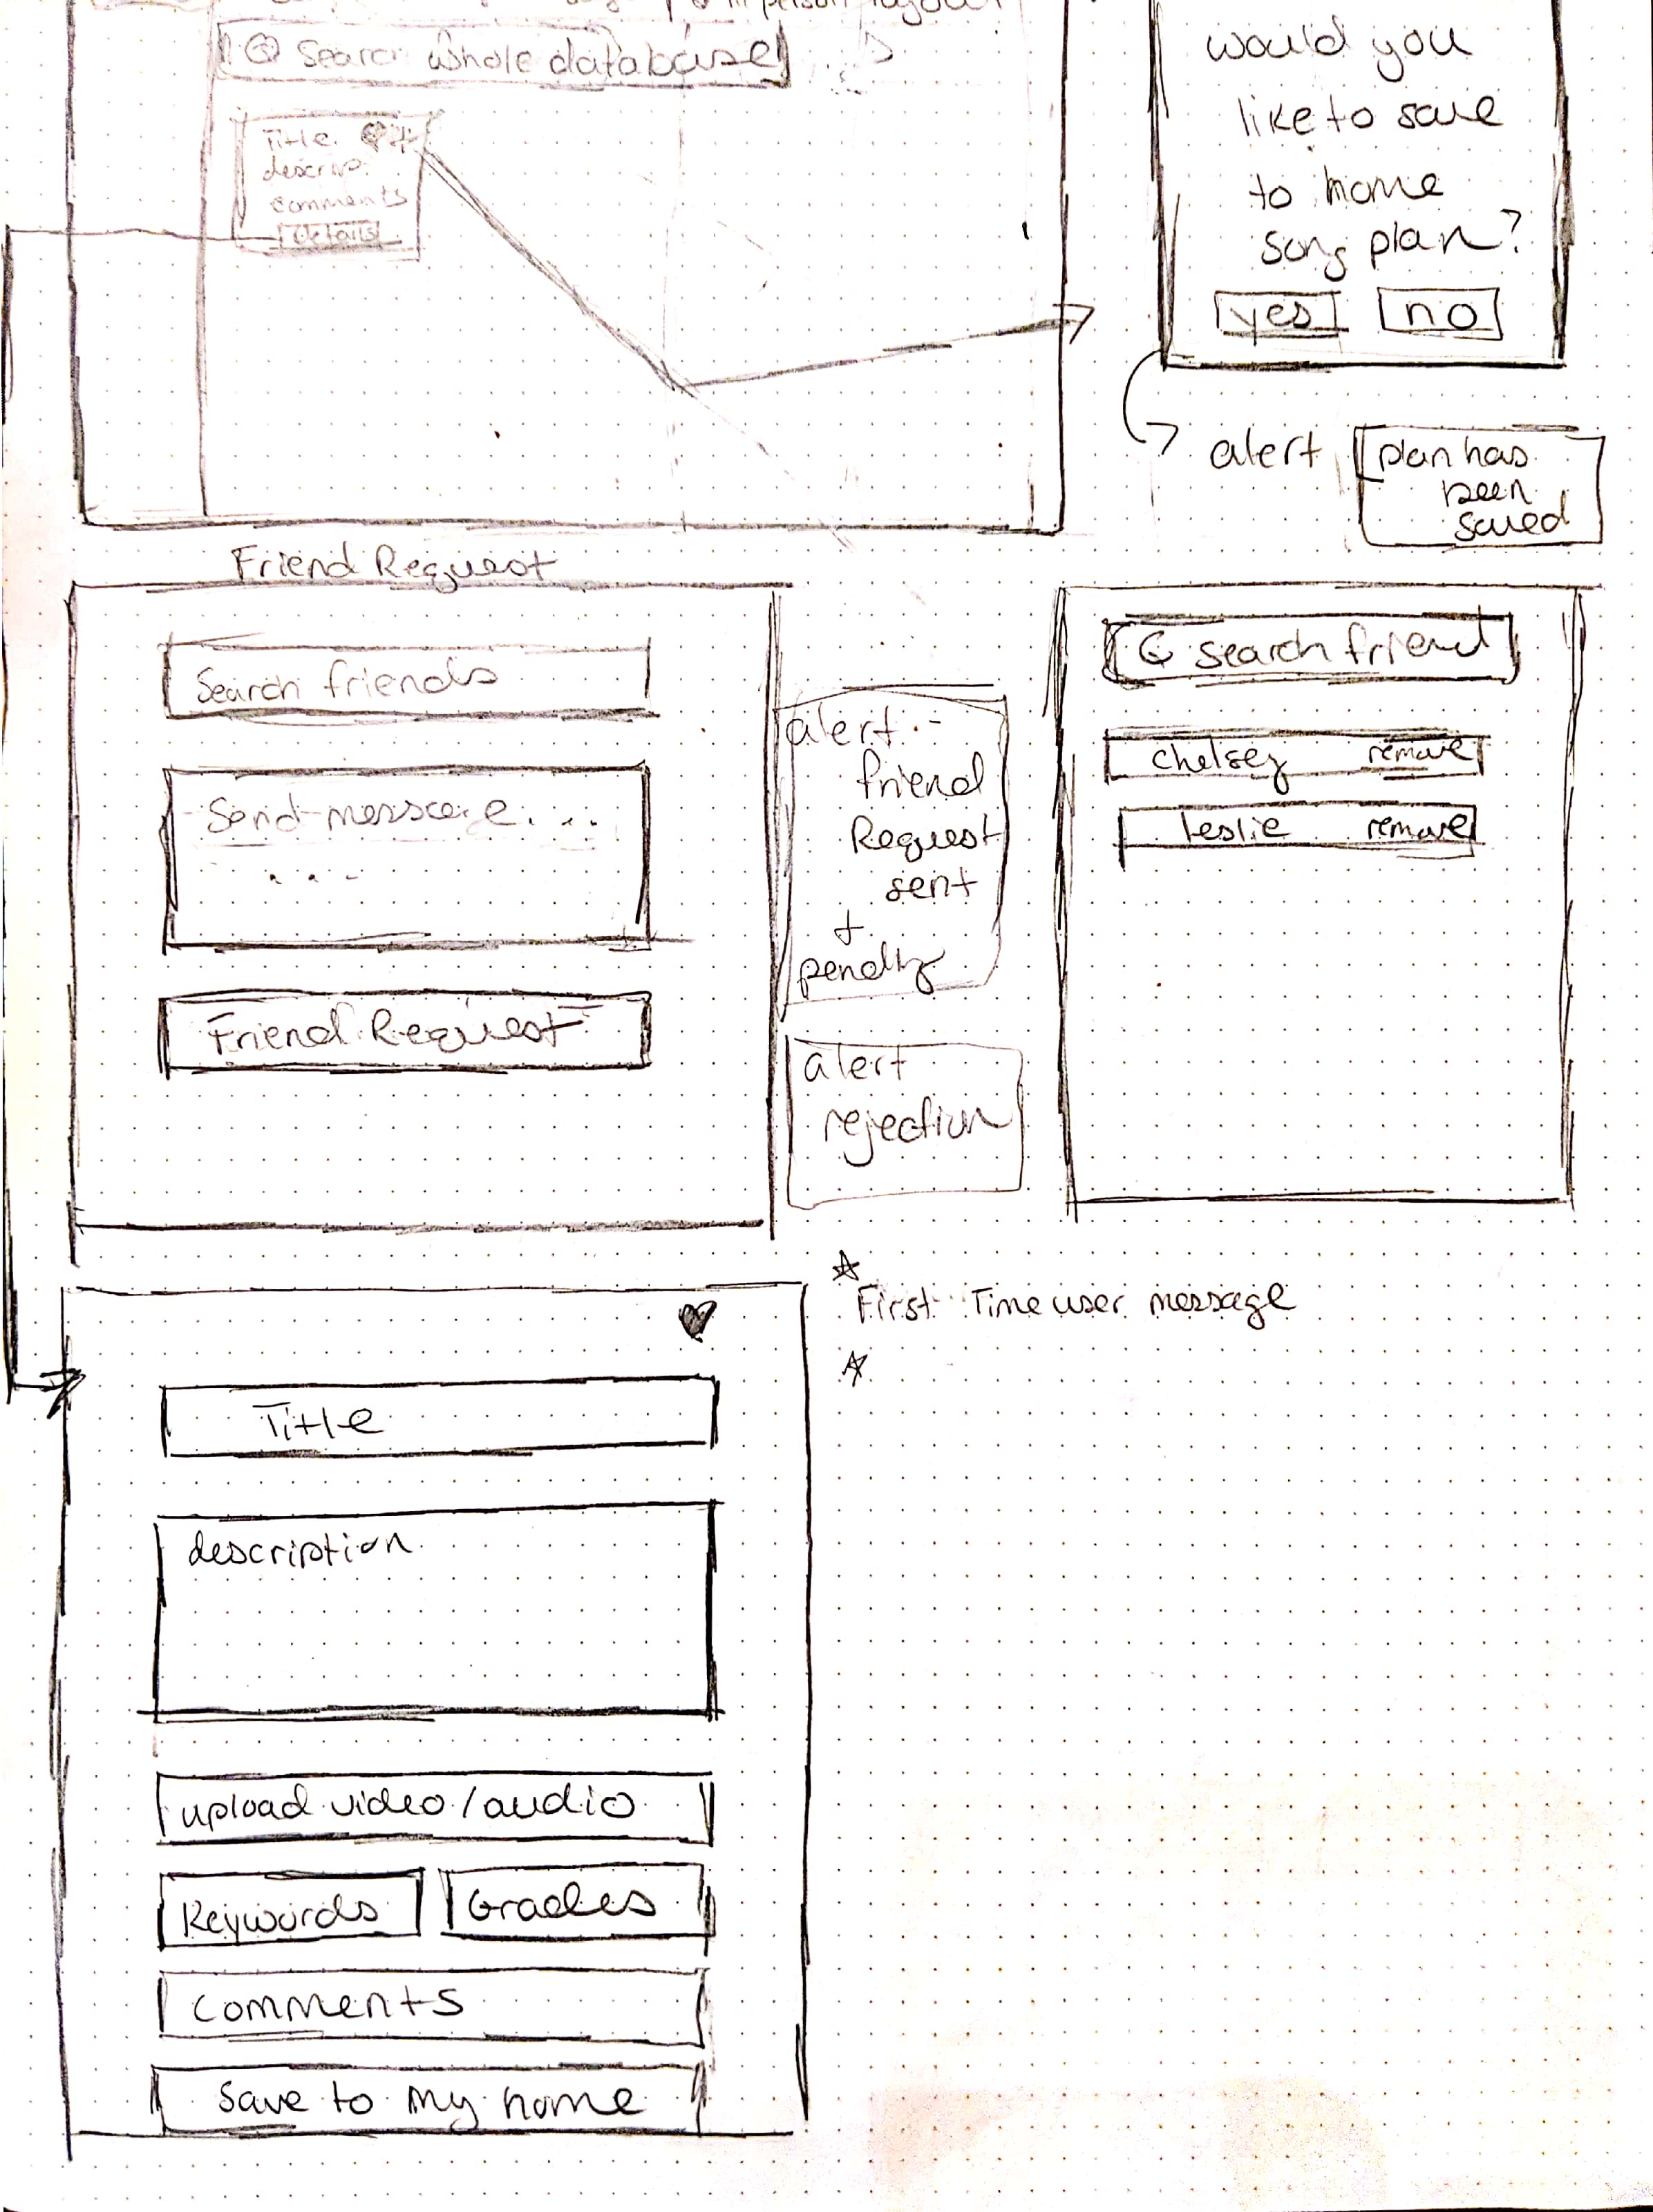 in person layout
Search whole database
Title +
descrip.
comments
details
would you
like to save
to home
song plan?
yes no
alert
plan has
been
saved
Friend Request
Search friends
Send message...
...
Friend Request
alert -
friend
Request
sent
+
pending
alert
rejection
search friend
chelsey remove
leslie remove
First Time user message
Title
description
upload video/audio
Keywords
Grades
comments
Save to my home